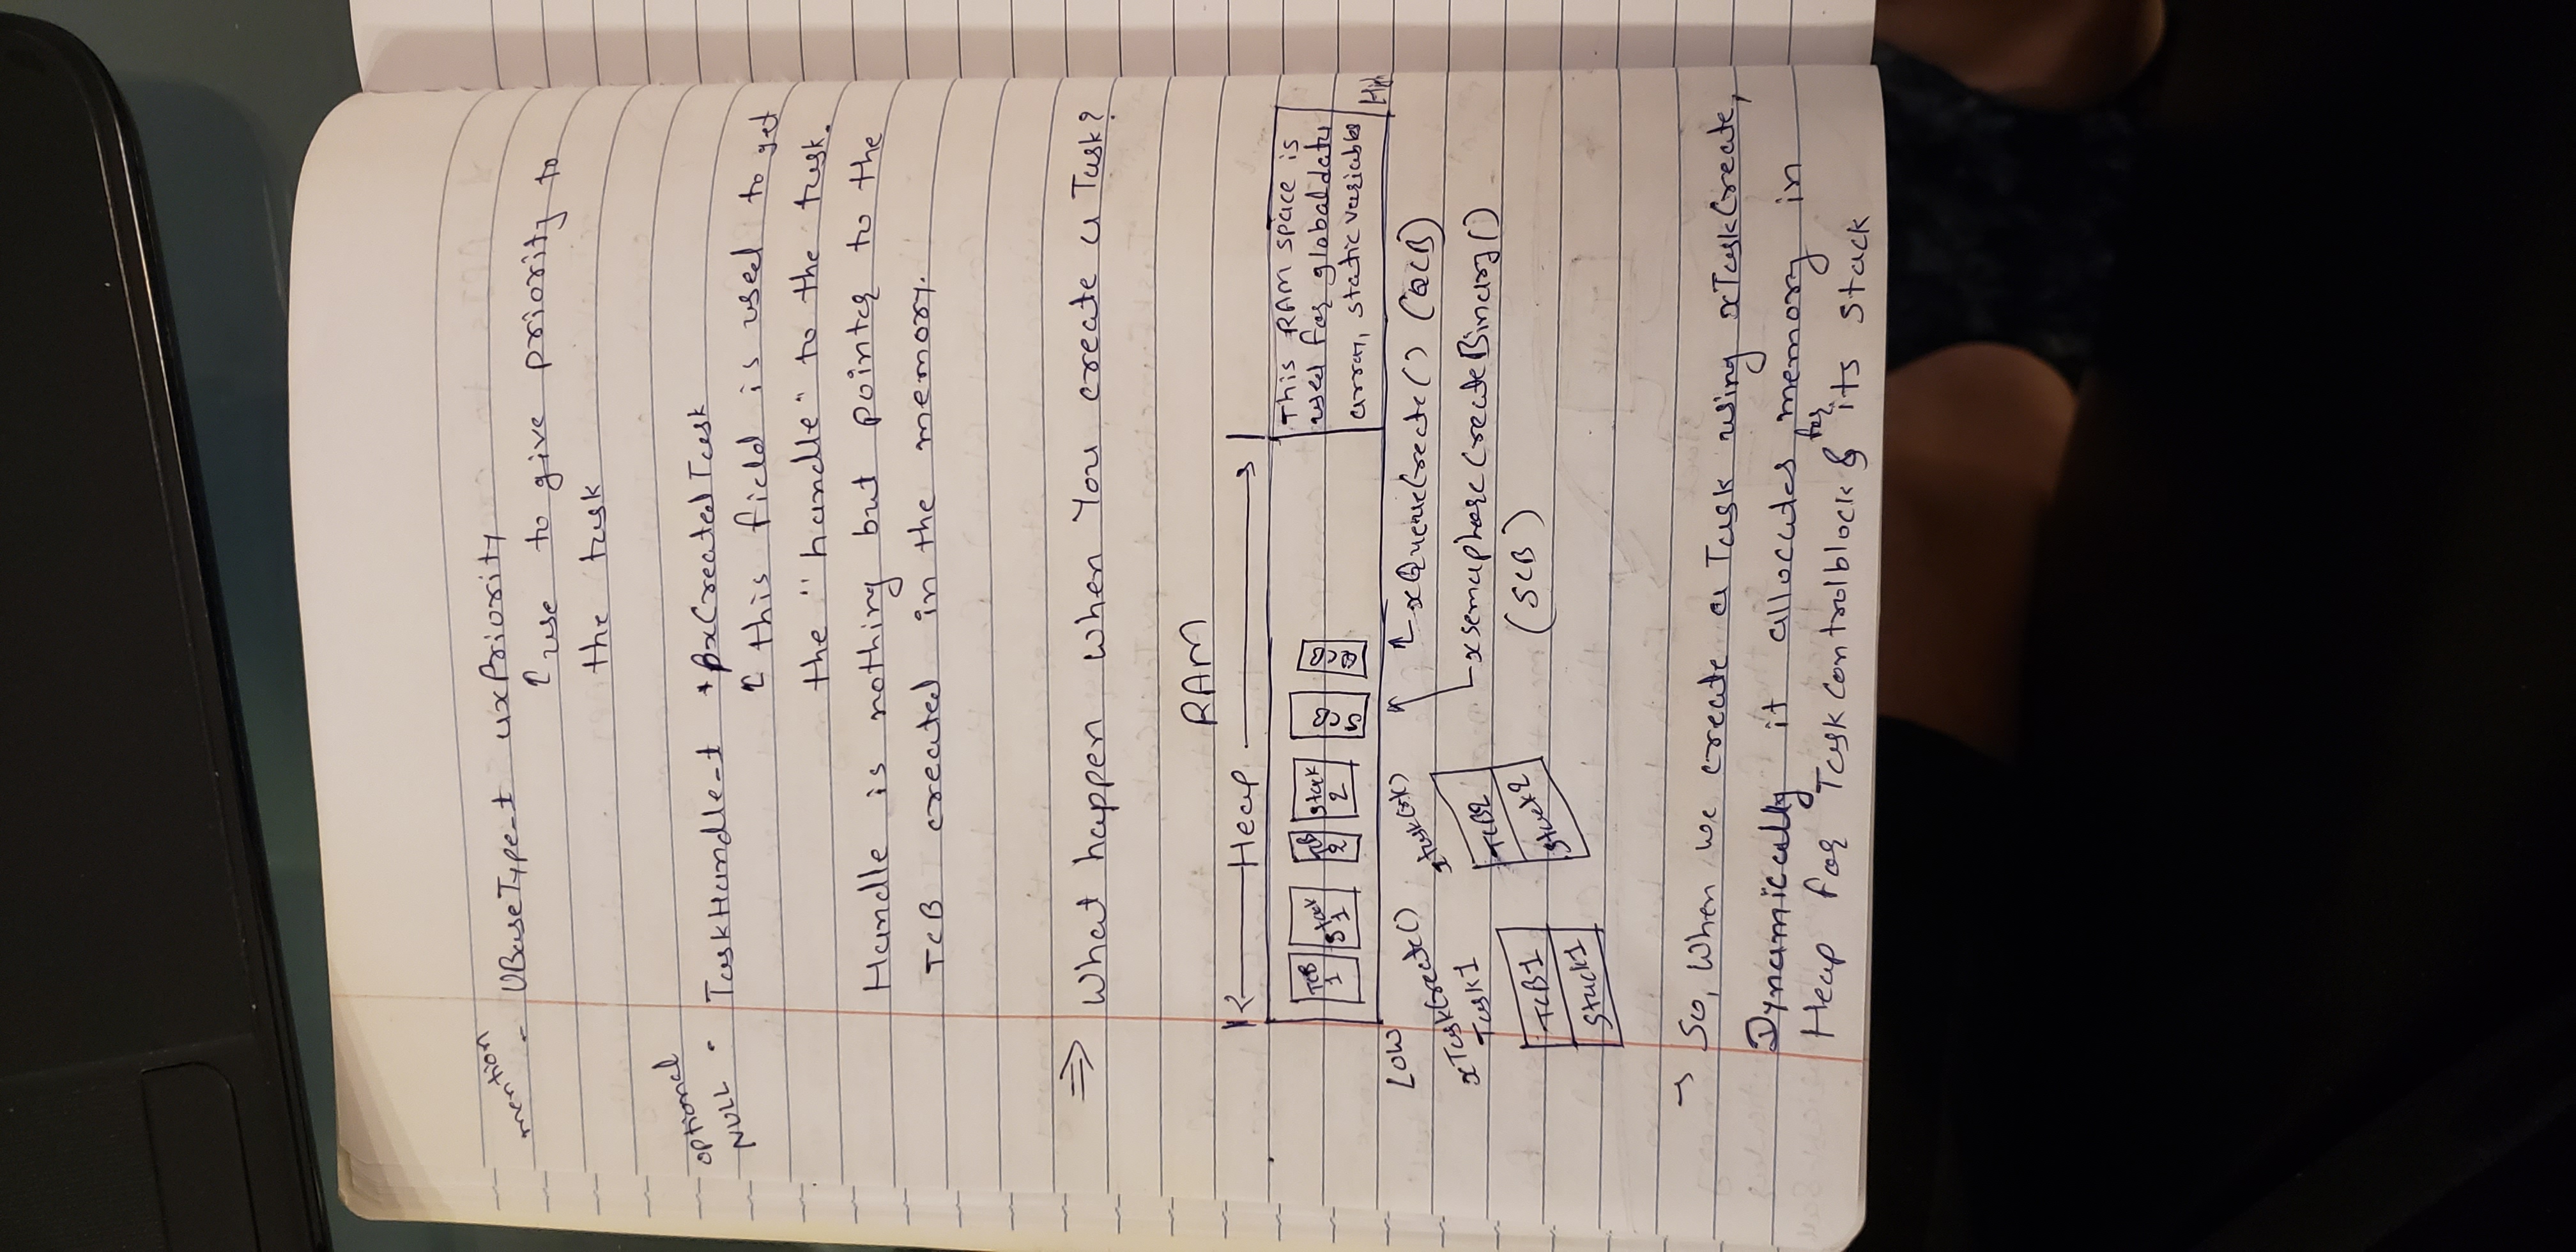 mention
- UBaseType_t uxPriority
use to give priority to
the task
optional
NULL
- TaskHandle_t *pxCreatedTask
this field is used to get
the "handle" to the task.
Handle is nothing but pointer to the
TCB created in the memory.
⇒ What happen when You create a Task?
RAM
Heap
TCB 1 Stack 1 TCB 2 Stack 2 SCB QCB
This RAM space is
used for global data
array, static variables
Low High
xTaskCreate()
Task1
TCB1
Stack1
TCB2
Stack2
xQueueCreate() (QCB)
xsemaphoreCreateBinary()
(SCB)
→ So, When we create a Task using xTaskCreate,
Dynamically it allocates memory in
Heap for Task Control block & for its stack